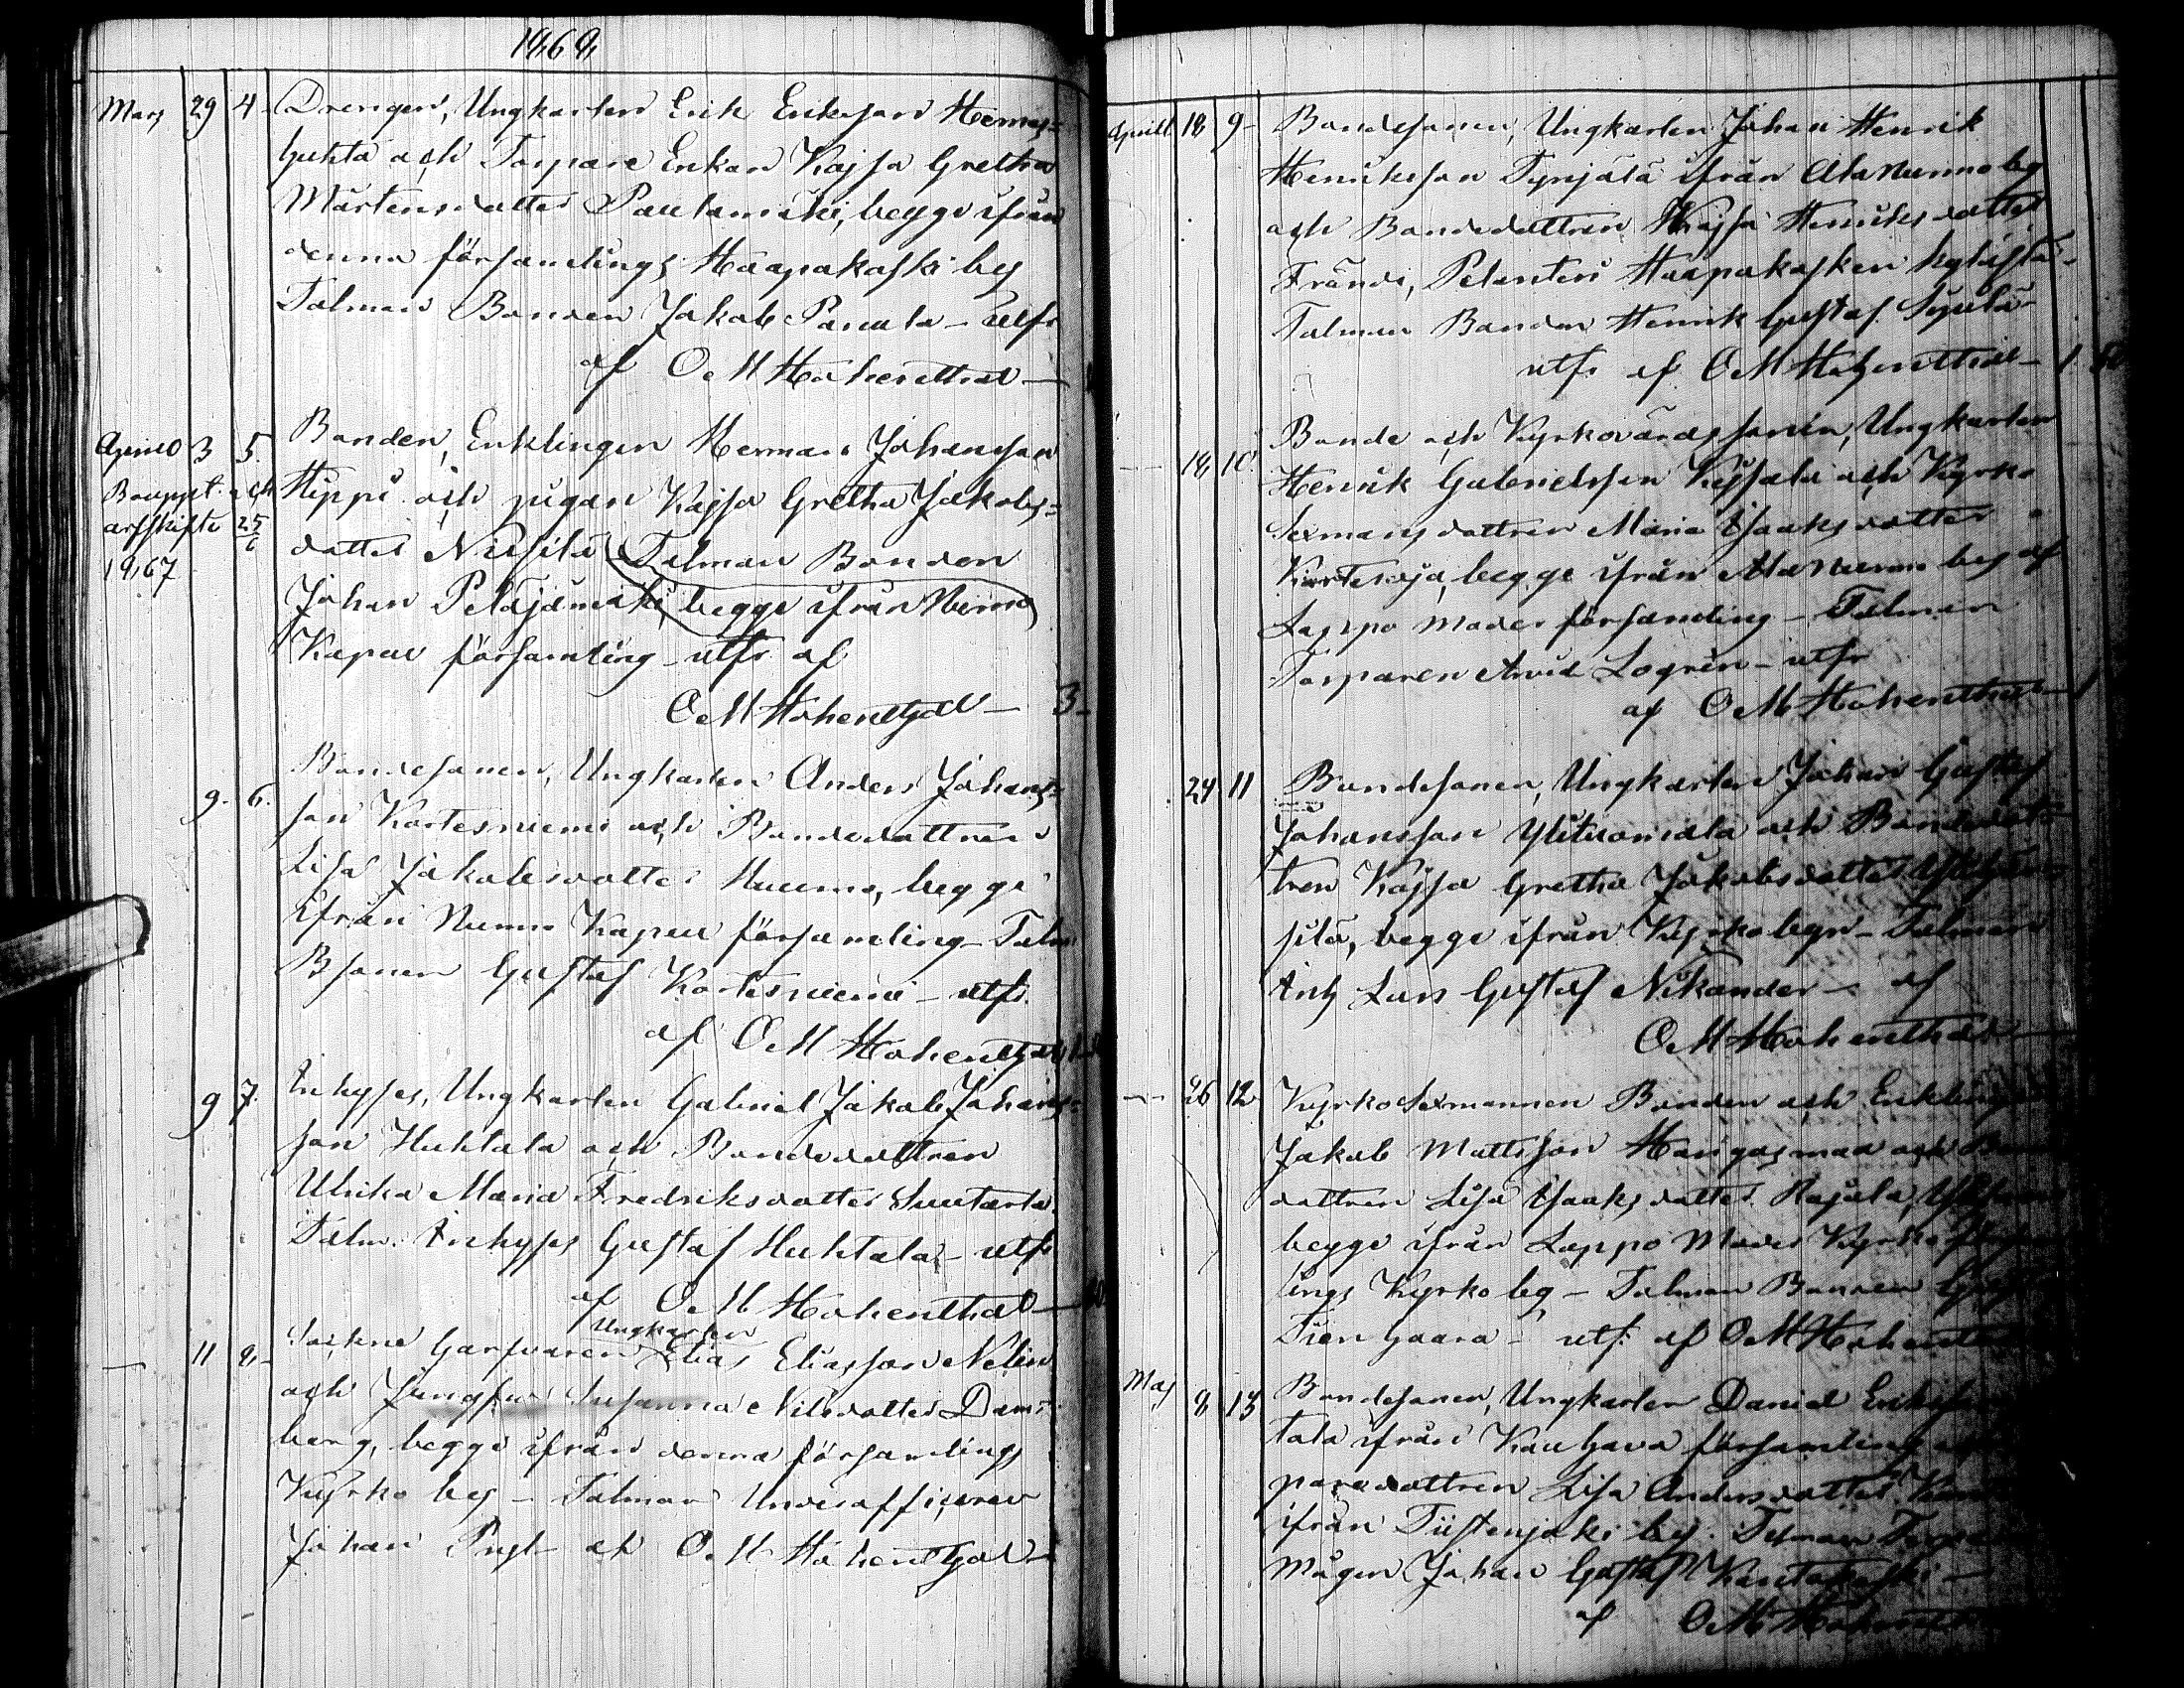 1868
Mars 29 4. Drengen, Ungkarlen Erik Eriksson Hernes=
huhta och Torpare Enkan Kajsa Gretha
Mårtensdotter Pautamäki, begge ifrån
denna församlings Haapakoski by
Talman Bonden Jakob Panula - utfr
af O M Hohenthal -
April 3 5. Bonden, Enklingen Herman Johansson
Bouppt. och Hippi och pigan Kajsa Gretha Jakobs=
arfskifte 25/6 dotter Niesilä Talman Bonden
1867 Johan Peldjamäki begge ifrån Nurmo
Kapell församling - utfr af
O M Hohenthal - 3 -
9. 6. Bondesonen, Ungkarlen Anders Johans=
son Kortesniemi och Bondedottren
Lisa Jakobsdotter Huumo, begge
ifrån Nurmo Kapell församling - Talm
Bsonen Gustaf Kortesniemi - utfr.
af O M Hohenthal
9 7. Inhyses, Ungkarlen Gabriel Jakob Johans=
son Huhtala och Bondedottren
Ulrika Maria Fredriksdotter Luutarla.
Talm. Inhyses Gustaf Huhtala - utfr
af O M Hohenthal -
Ungkarlen
11 8. Sockne Garfvaren Elias Eliasson Nelin
och Jungfru Susanna Nilsdotter Dam=
berg, begge ifrån denna församlings
Kyrko by - Talman Underofficeren
Johan Pugl af O M Hohenthal -
April 18 9 - Bondesonen, Ungkarlen Johan Henrik
Henriksson Tynjälä ifrån Ala Nurmo by
och Bondedottren Kajsa Henriksdotter
Frändi, Haapakosken
Talman Bonden Henrik Gustaf
utfr af O M Hohenthal - 1
18 10. Bonde och Kyrkovärdssonen, Ungkarlen
Henrik Gabrielsson Kujsala och Kyrko
Sexmansdottren Maria Isaksdotter
Kortesoja, begge ifrån Ala Nurmo by af
Lappo moder församling - Talman
Torparen Arvid Logrén - utfr
af O M Hohenthal - 1
24 11 Bondesonen, Ungkarlen Johan Gustaf
Johansson Ylituomala och Bondedot=
tren Kajsa Gretha Jakobsdotter
silä, begge ifrån Kyrkobyn - Talman
Inh Lars Gustaf Nikander - af
O M Hohenthal -
26 12 Kyrko Sexmannen Bonden och Enklingen
Jakob Mattsson Kangasmaa och
dottren Lisa Isaksdotter Rajala,
begge ifrån Lappo Moder Kyrko
lings Kyrko by - Talman Bonden
Tienhaara - utf: af O M Hohenthal
Maj 8 13 Bondesonen, Ungkarlen Daniel
tala ifrån Kauhava församling
paredottren Lisa Andersdotter
ifrån Tiistenjoki by. Talman
Mågen Johan Gustaf Kantakoski -
af O M Hohenthal